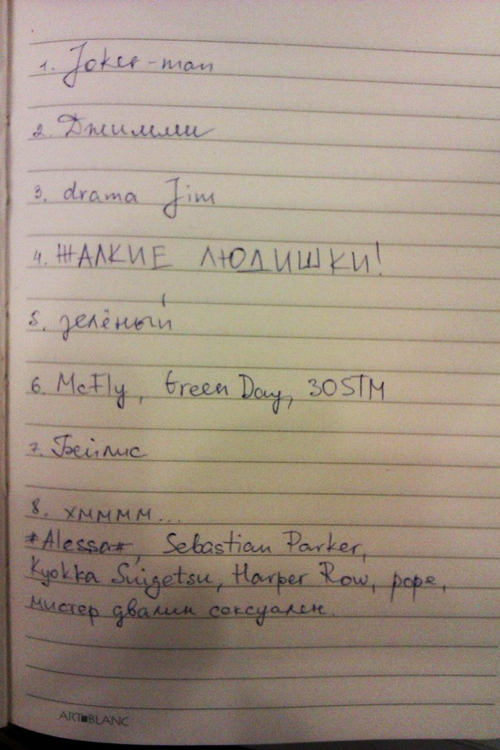 1. Joker-man
2. Джимми
3. drama Jim
4. ЖАЛКИЕ ЛЮДИШКИ!
5. зелёный
6. McFly, Green Day, 30STM
7. Бейлис
8. хмммм...
*Alessa*, Sebastian Parker,
Kyokka Suigetsu, Harper Row, pope,
мистер двалин сексуален.
ART■BLANC